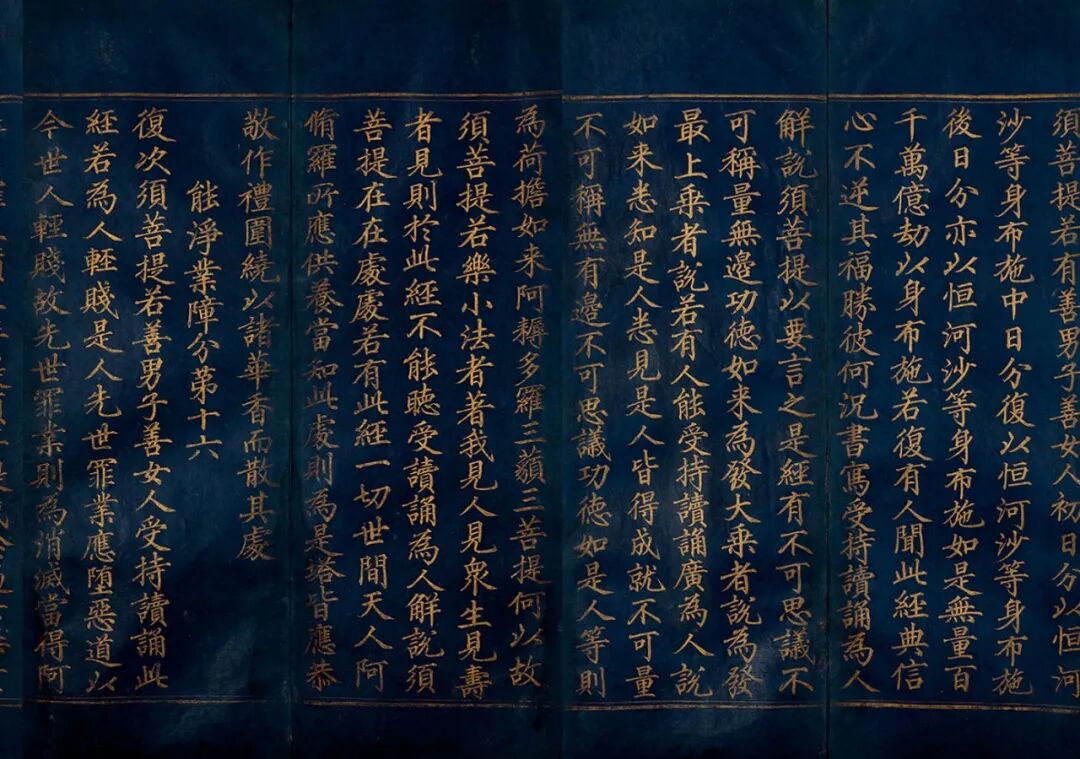 須菩提若有善男子善女人初日分以恒河
沙等身布施中日分復以恒河沙等身布施
後日分亦以恒河沙等身布施如是無量百
千萬億劫以身布施若復有人聞此經典信
心不逆其福勝彼何況書寫受持讀誦為人
解說須菩提以要言之是經有不可思議不
可稱量無邊功德如来為發大乗者說為發
最上乗者說若有人能受持讀誦廣為人說
如来悉知是人悉見是人皆得成就不可量
不可稱無有邊不可思議功徳如是人等則
為荷擔如来阿耨多羅三藐三菩提何以故
須菩提若樂小法者著我見人見衆生見壽
者見則於此經不能聽受讀誦為人解說須
菩提在在處處若有此經一切世間天人阿
脩羅所應供養當知此處則為是塔皆應恭
敬作禮圍繞以諸華香而散其處
能淨業障分苐十六
復次須菩提若善男子善女人受持讀誦此
經若為人輕賤是人先世罪業應堕惡道以
今世人輕賤故先世罪業則為消滅當得阿